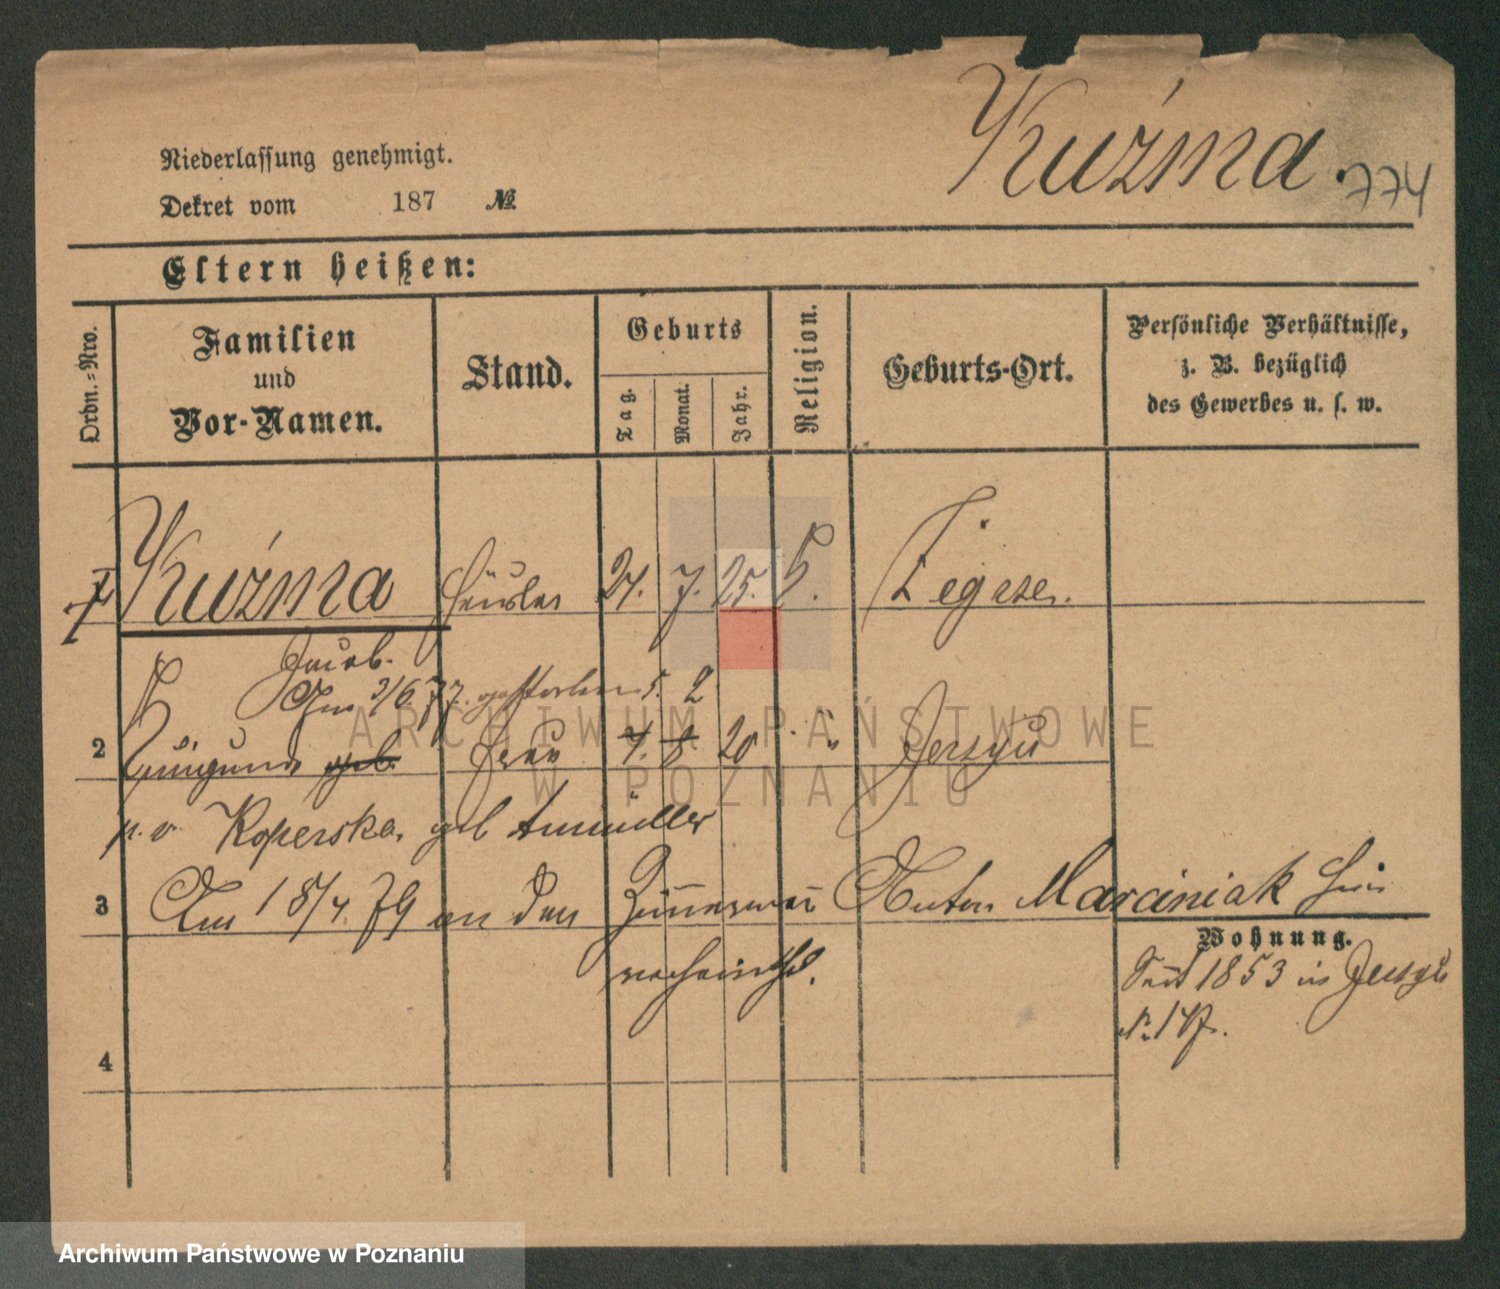 Kuźma. 774
Niederlassung genehmigt.
Dekret vom 187 №
Eltern heißen:
Ordn.=Nro.
Familien
und
Vor-Namen.
Stand.
Geburts
Tag.
Monat.
Jahr.
Religion.
Geburts-Ort.
Persönliche Verhältnisse,
z. B. bezüglich
des Gewerbes u. s. w.
Kuźma Häusler 24. 7. 25. Zegrze.
Jacob.
Am 3/6 77. gestorben 5. 2
2 Frau 7. 8. 20 Jerzyce
Koperska, geb
3 Am 18/4. 79 an den Anton Marciniak hier
verheirathet.
Wohnung.
Seit 1853 in Jerzyce
4
ARCHIWUM PAŃSTWOWE
W POZNANIU
Archiwum Państwowe w Poznaniu